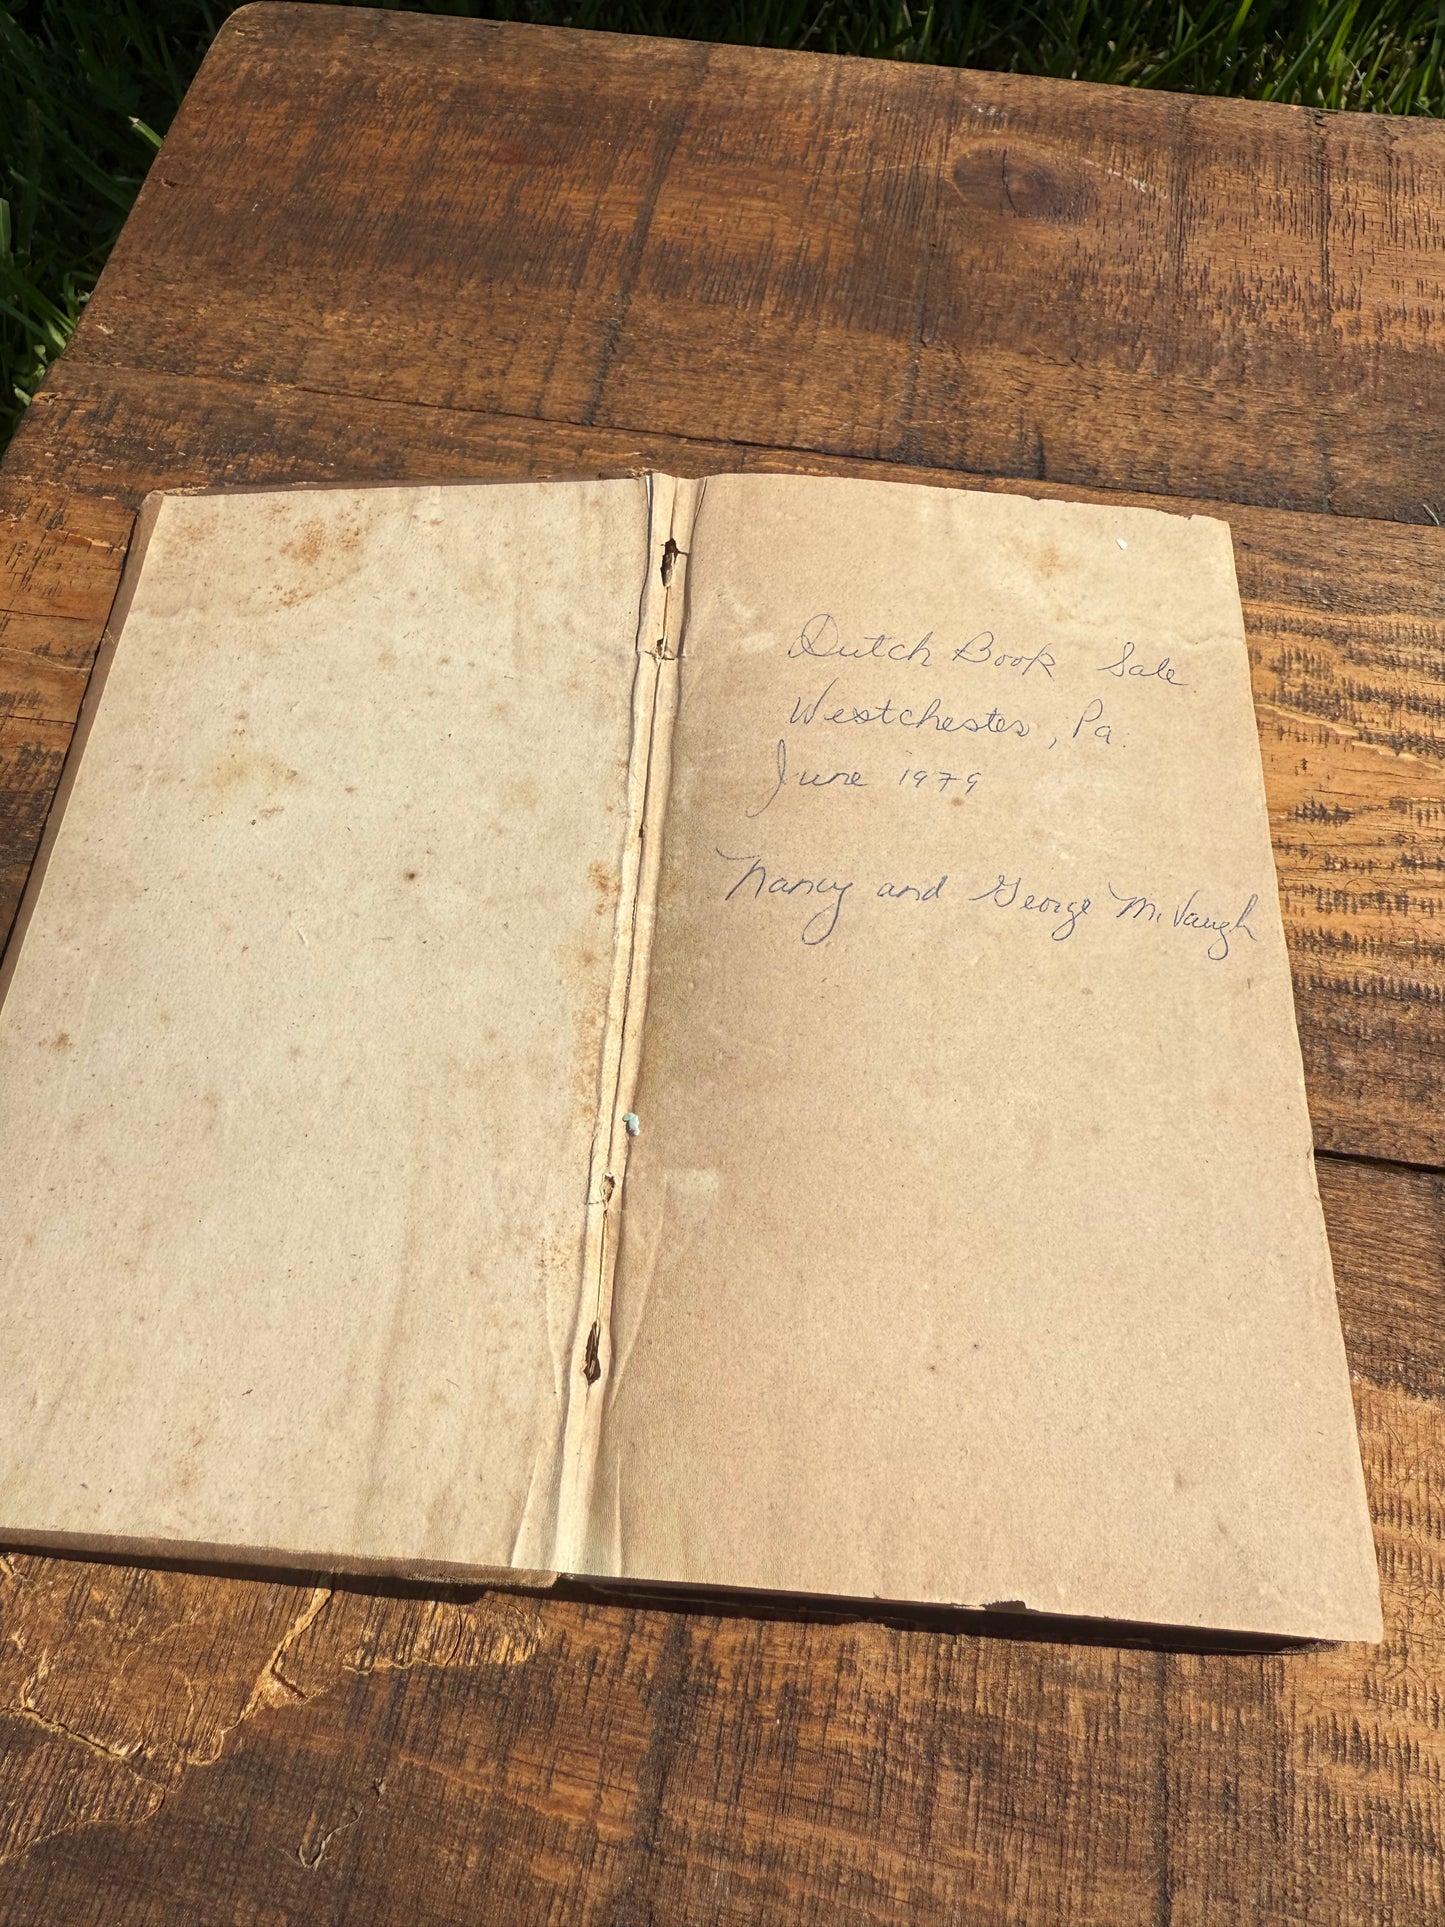 Dutch Book Sale
Westchester, Pa.
June 1979
Nancy and George McVaugh